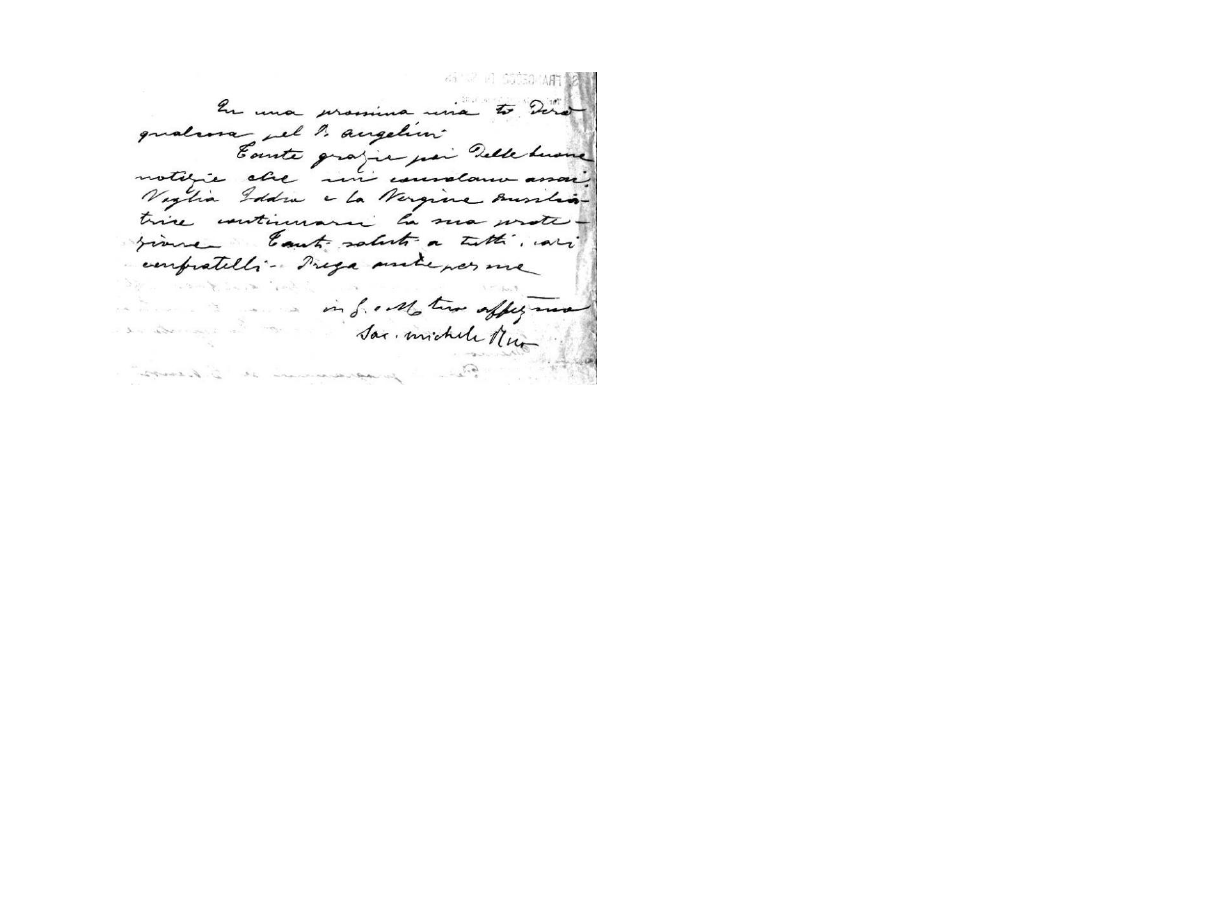 In una prossima mia ti dirò
qualcosa pel D. Angelini
Tante grazie poi delle buone
notizie che mi consolano assai.
Voglia Iddio e la Vergine Ausilia-
trice continuarvi la sua prote-
zione Tanti saluti a tutti i cari
confratelli - Prega anche per me
in G. e M. tuo affez.mo
Sac. Michele Rua